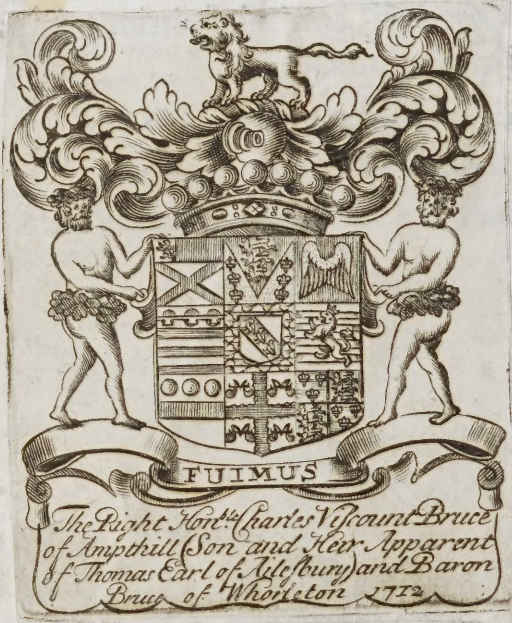 FUIMUS
The Right Honble Charles Viscount Bruce
of Ampthill (Son and Heir Apparent
of Thomas Earl of Ailesbury) and Baron
Bruce of Whorleton 1712